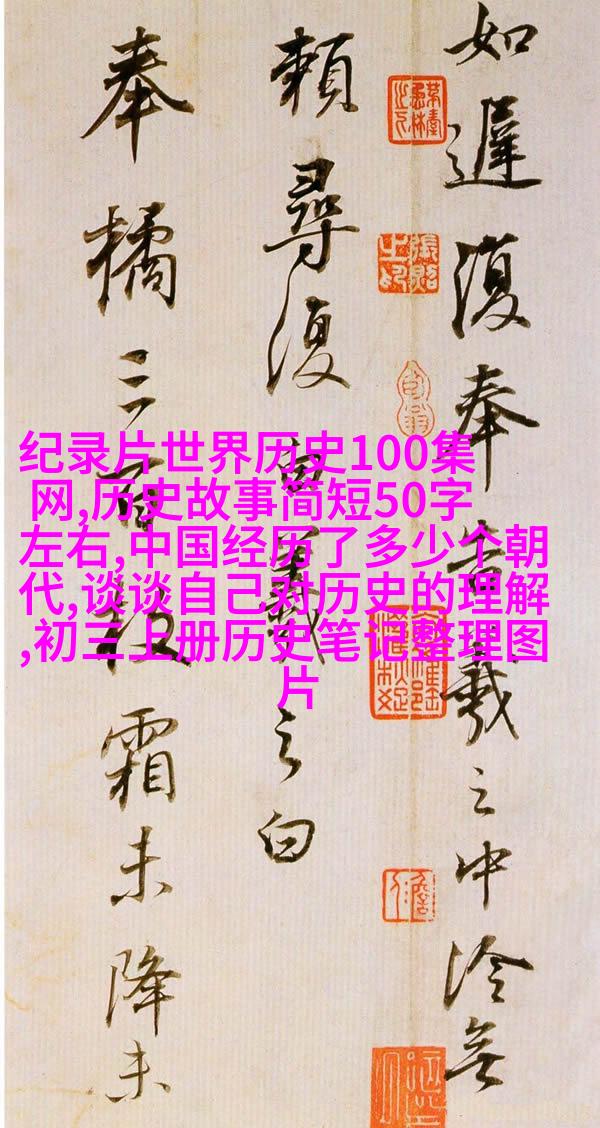 如遲復奉告羲之中冷無
賴尋復白羲之白
奉橘三百枚霜未降未
纪录片世界历史100集
网,历史故事简短50字
左右,中国经历了多少个朝
代,谈谈自己对历史的理解
,初三上册历史笔记整理图
片